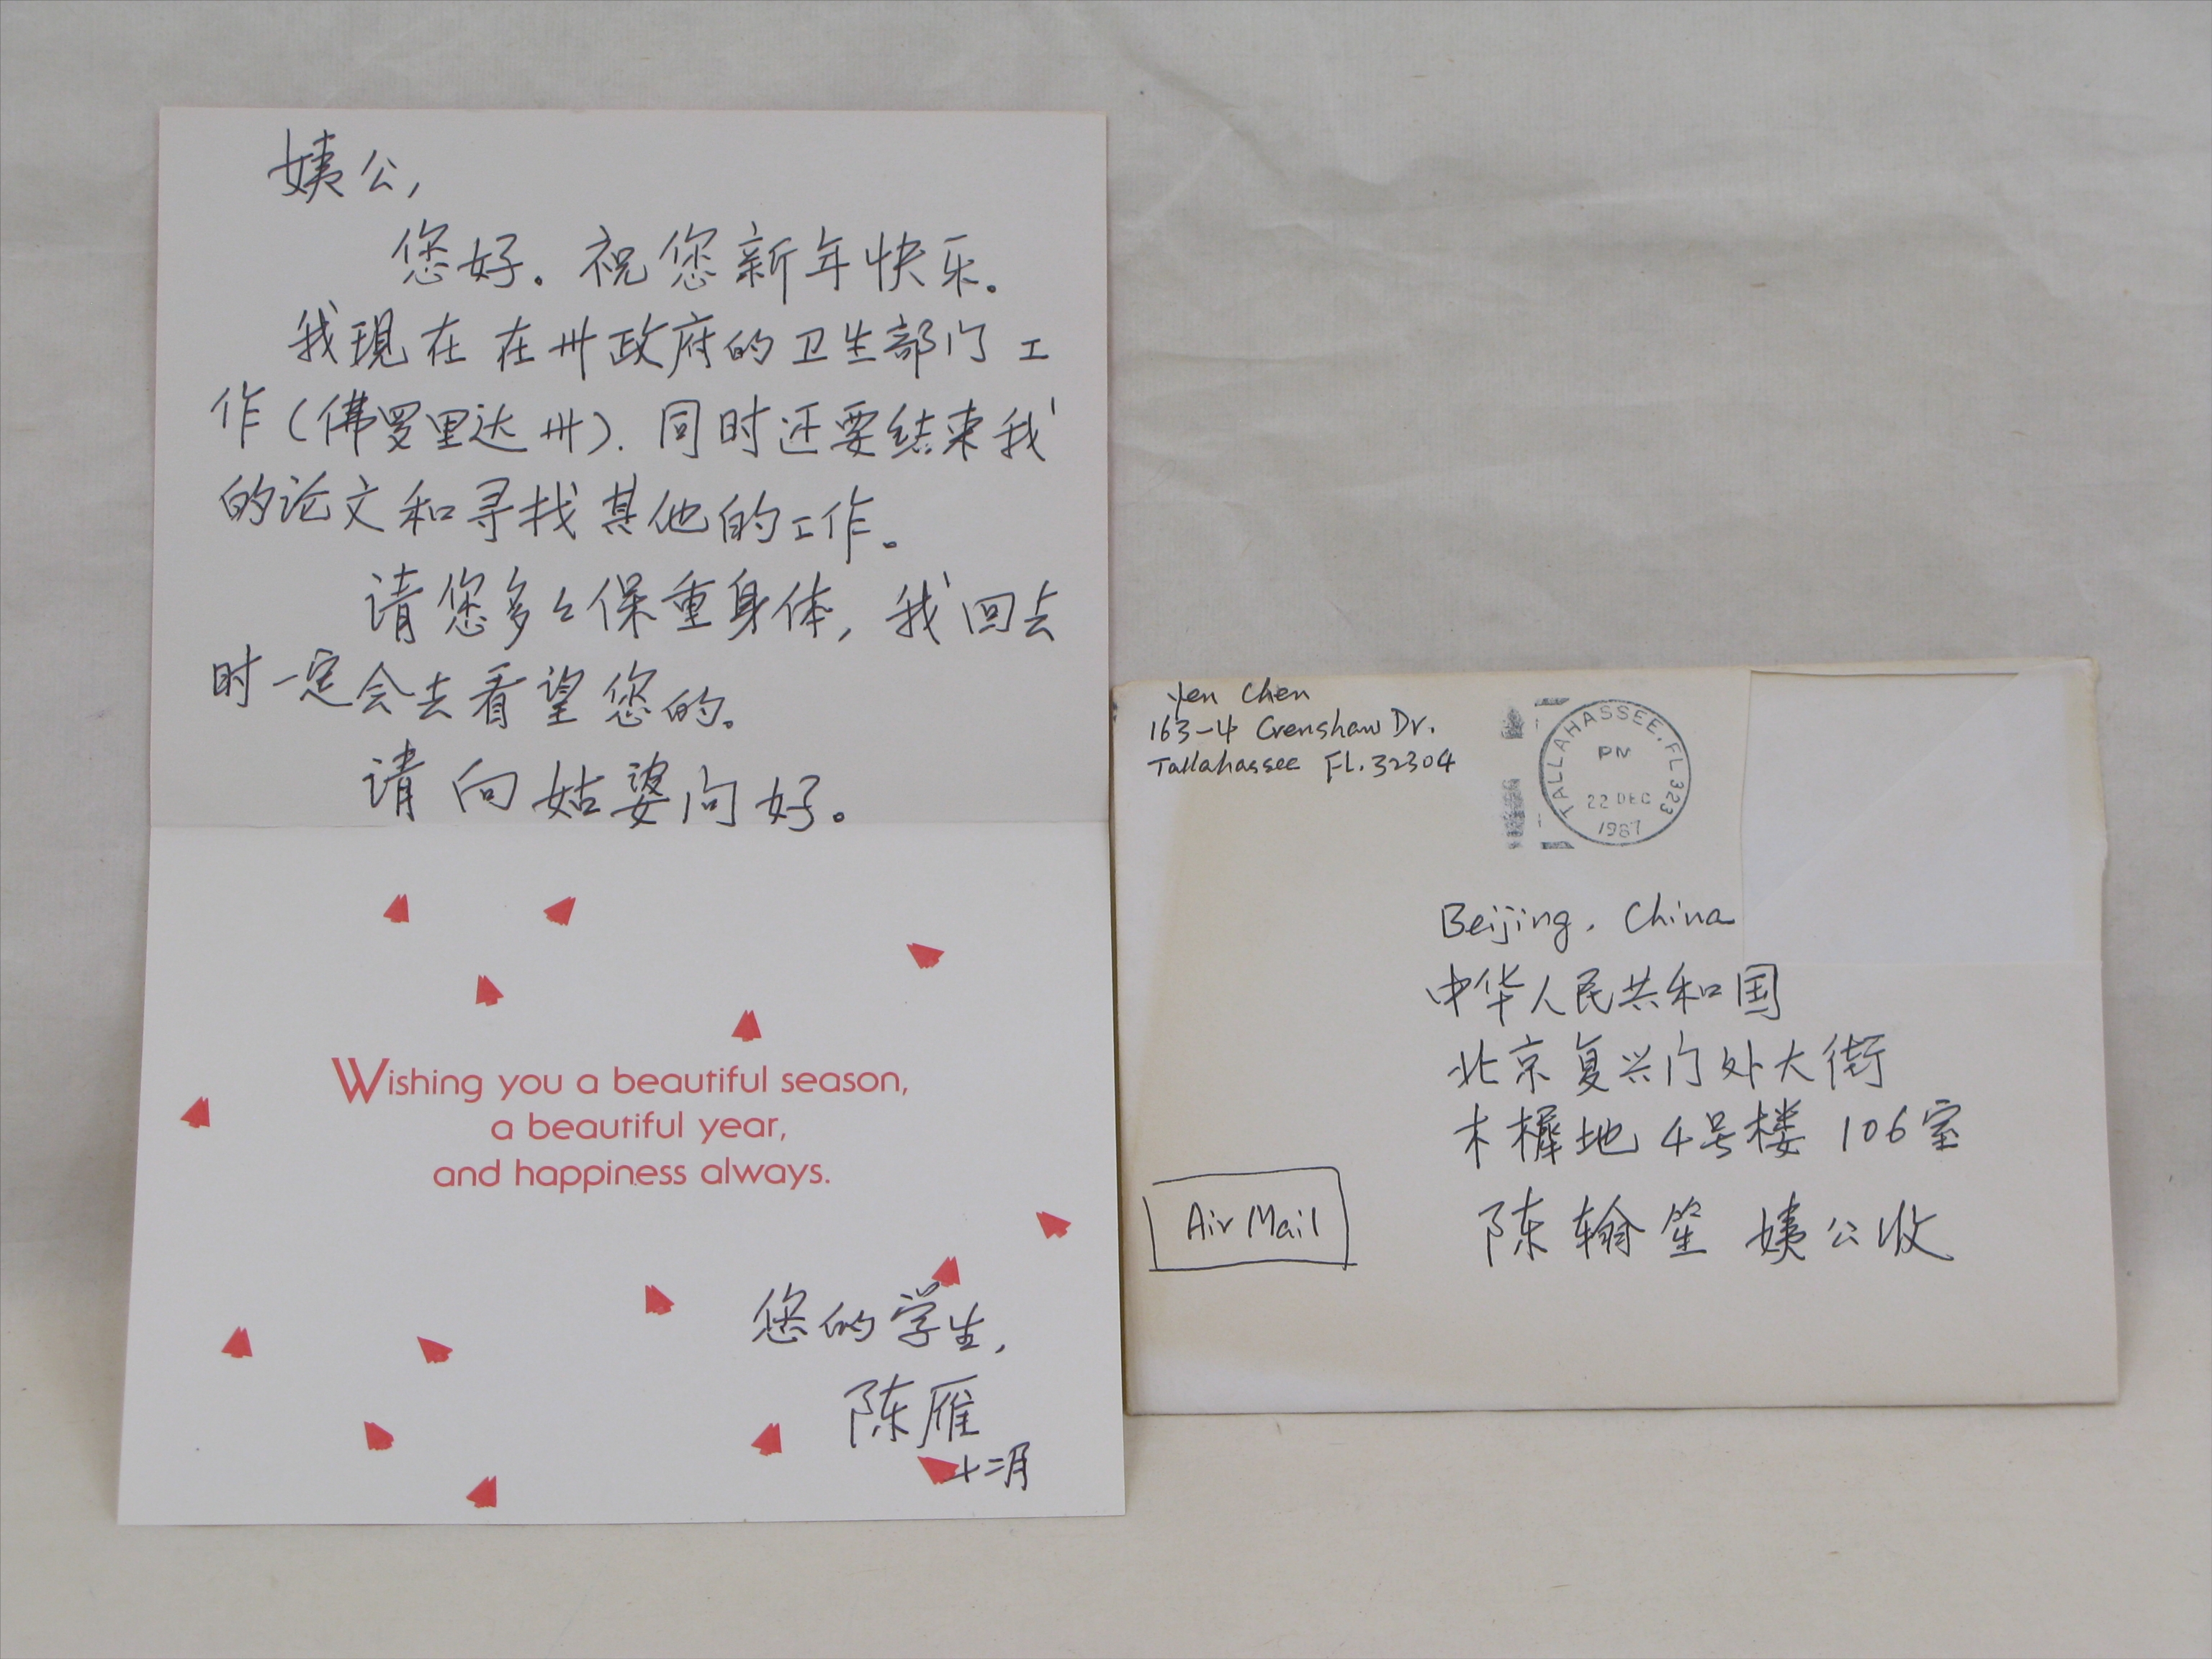 姨公，
您好。祝您新年快乐。
我現在在州政府的卫生部门工
作（佛罗里达州）．同时还要结束我
的论文和寻找其他的工作。
请您多々保重身体，我回去
时一定会去看望您的。
请向姑婆问好。
Wishing you a beautiful season,
a beautiful year,
and happiness always.
您的学生，
陈雁
十二月
Yen Chen
163-4 Crenshaw Dr.
Tallahassee FL. 32304
TALLAHASSEE, FL 323
PM
22 DEC
1987
Beijing, China
中华人民共和国
北京复兴门外大街
木樨地 4号楼 106室
陈翰笙 姨公收
Air Mail